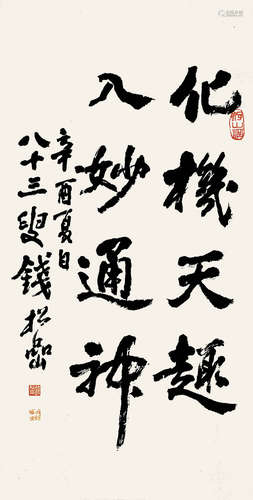 化機天趣
入妙通神
辛酉夏日
八十三叟錢松嵒